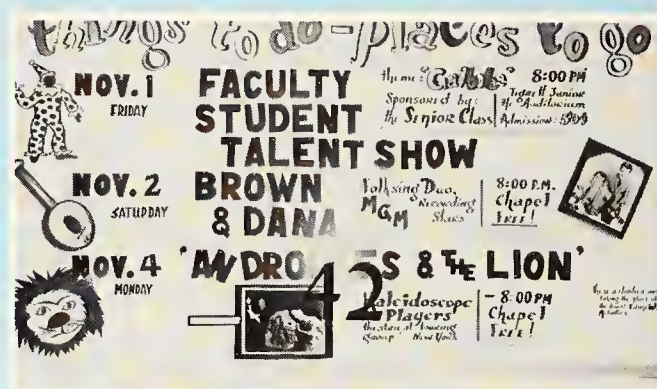 things to do - places to go
NOV. 1
FRIDAY
FACULTY
STUDENT
TALENT SHOW
Theme:
Sponsored by:
the Senior Class
8:00 PM
Auditorium
Admission: 50¢
NOV. 2
SATURDAY
BROWN
& DANA
Folksing Duo,
MGM Recording
Stars
8:00 P.M.
Chapel
FREE!
NOV. 4
MONDAY
'ANDRO ES & THE LION'
42
Kaleidoscope
Players
Group New York
- 8:00 PM
Chapel
FREE!